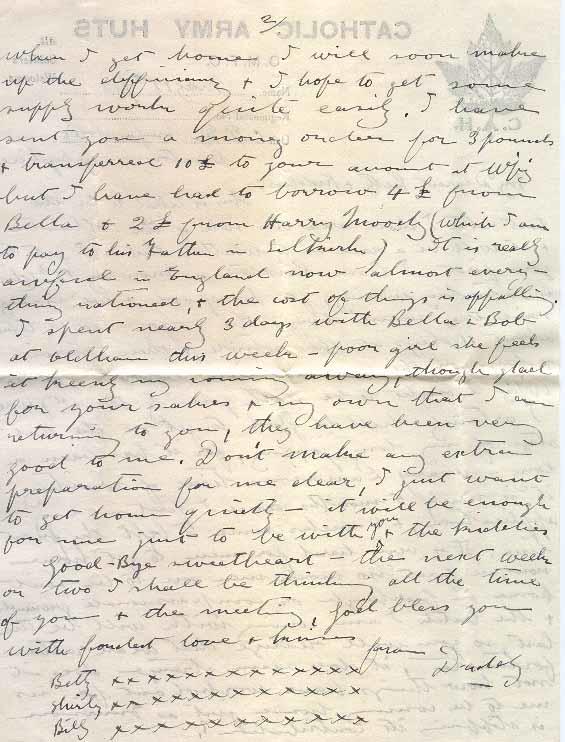 2/
CATHOLIC ARMY HUTS
when I get home I will soon make
up the defficiency & I hope to get some
supply work quite easily. I have
sent you a money order for 3 pounds
& transferred 10£ to your amount at Wpg
but I have had to borrow 4£ from
Bella & 2£ from Harry Moody (which I am
to pay to his Father in Selkirk) It is really
awful in England now almost every-
thing rationed, & the cost of things is appalling.
I spent nearly 3 days with Bella & Bob
at Oldham this week – poor girl she feels
it keenly my coming away, though glad
for your sakes & my own that I am
returning to you, they have been very
good to me. Don't make any extra
preparation for me dear, I just want
to get home quietly – it will be enough
for me just to be with you & the kiddies
Good-Bye sweetheart – the next week
or two I shall be thinking all the time
of you & the meeting. God bless you
with fondest love & kisses
from Daddy
Betty xxxxxxxxxxxxxx
Shirley xxxxxxxxxxxxxx
Billy xxxxxxxxxxxxxx
C.A.H.